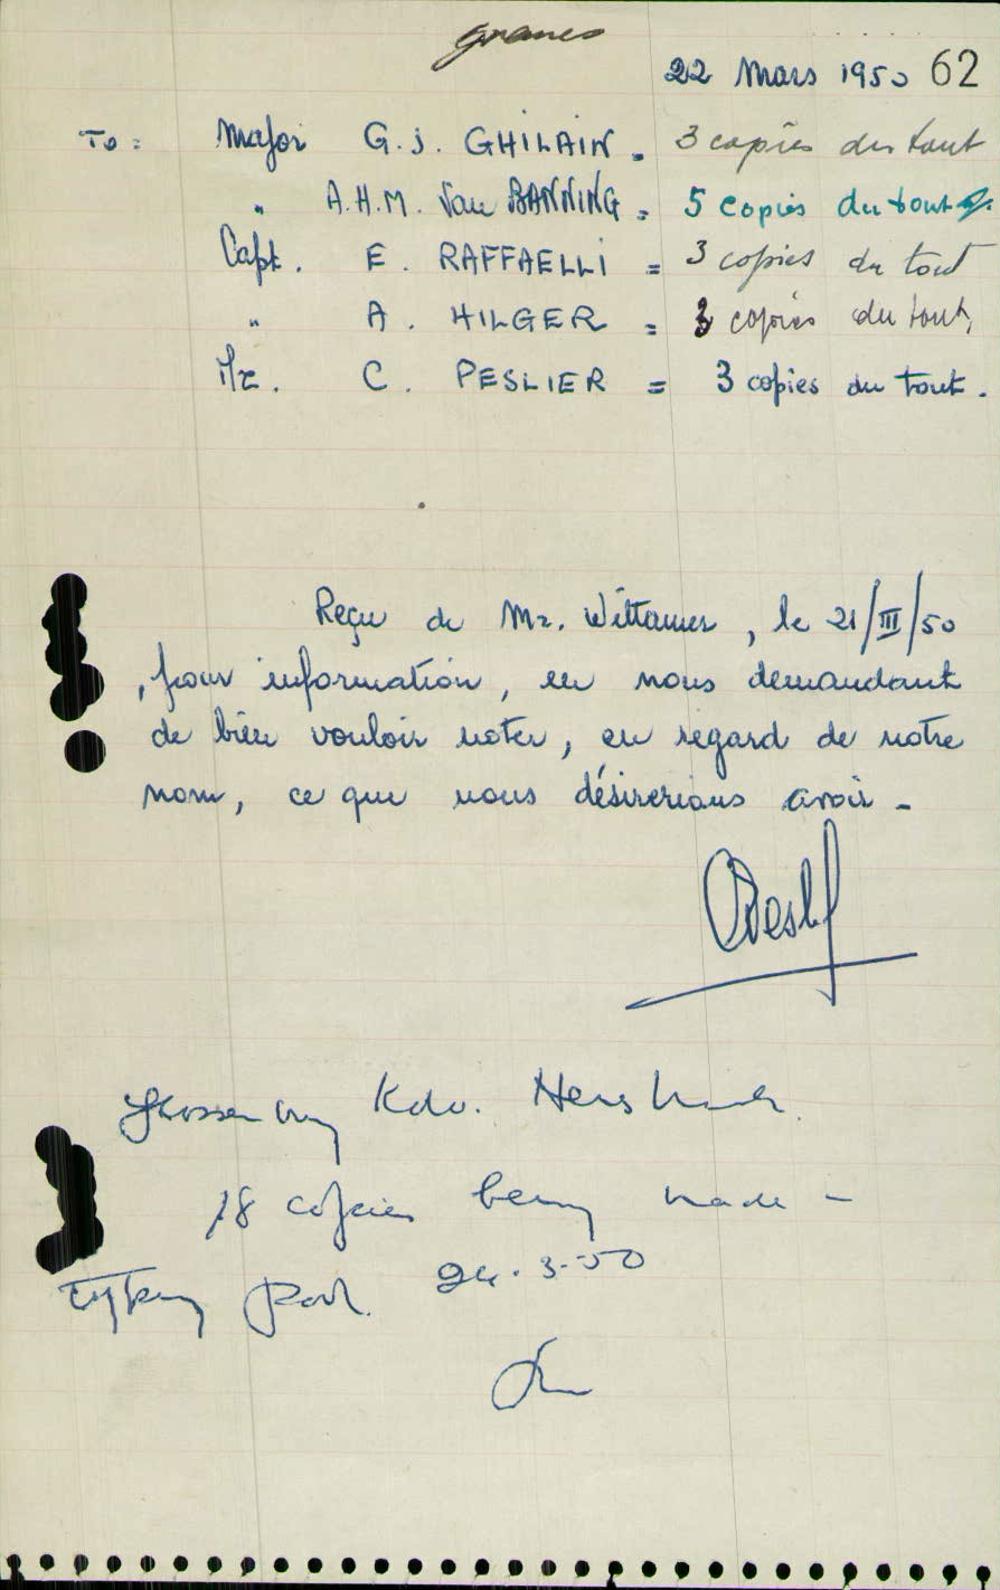 graves
22 Mars 1950 62
To : Major G. J. GHILAIN = 3 copies du tout
" A.H.M. Van BANNING = 5 copies du tout
Capt. E. RAFFAELLI = 3 copies du tout
" A. HILGER = 3 copies du tout,
Mr. C. PESLIER = 3 copies du tout.
Reçu de Mr. Wittamer, le 21/III/50
, pour information, en nous demandant
de bien vouloir noter, en regard de notre
nom, ce que nous désirerions avoir -
Kdo.
18 copies being made -
24.3.50